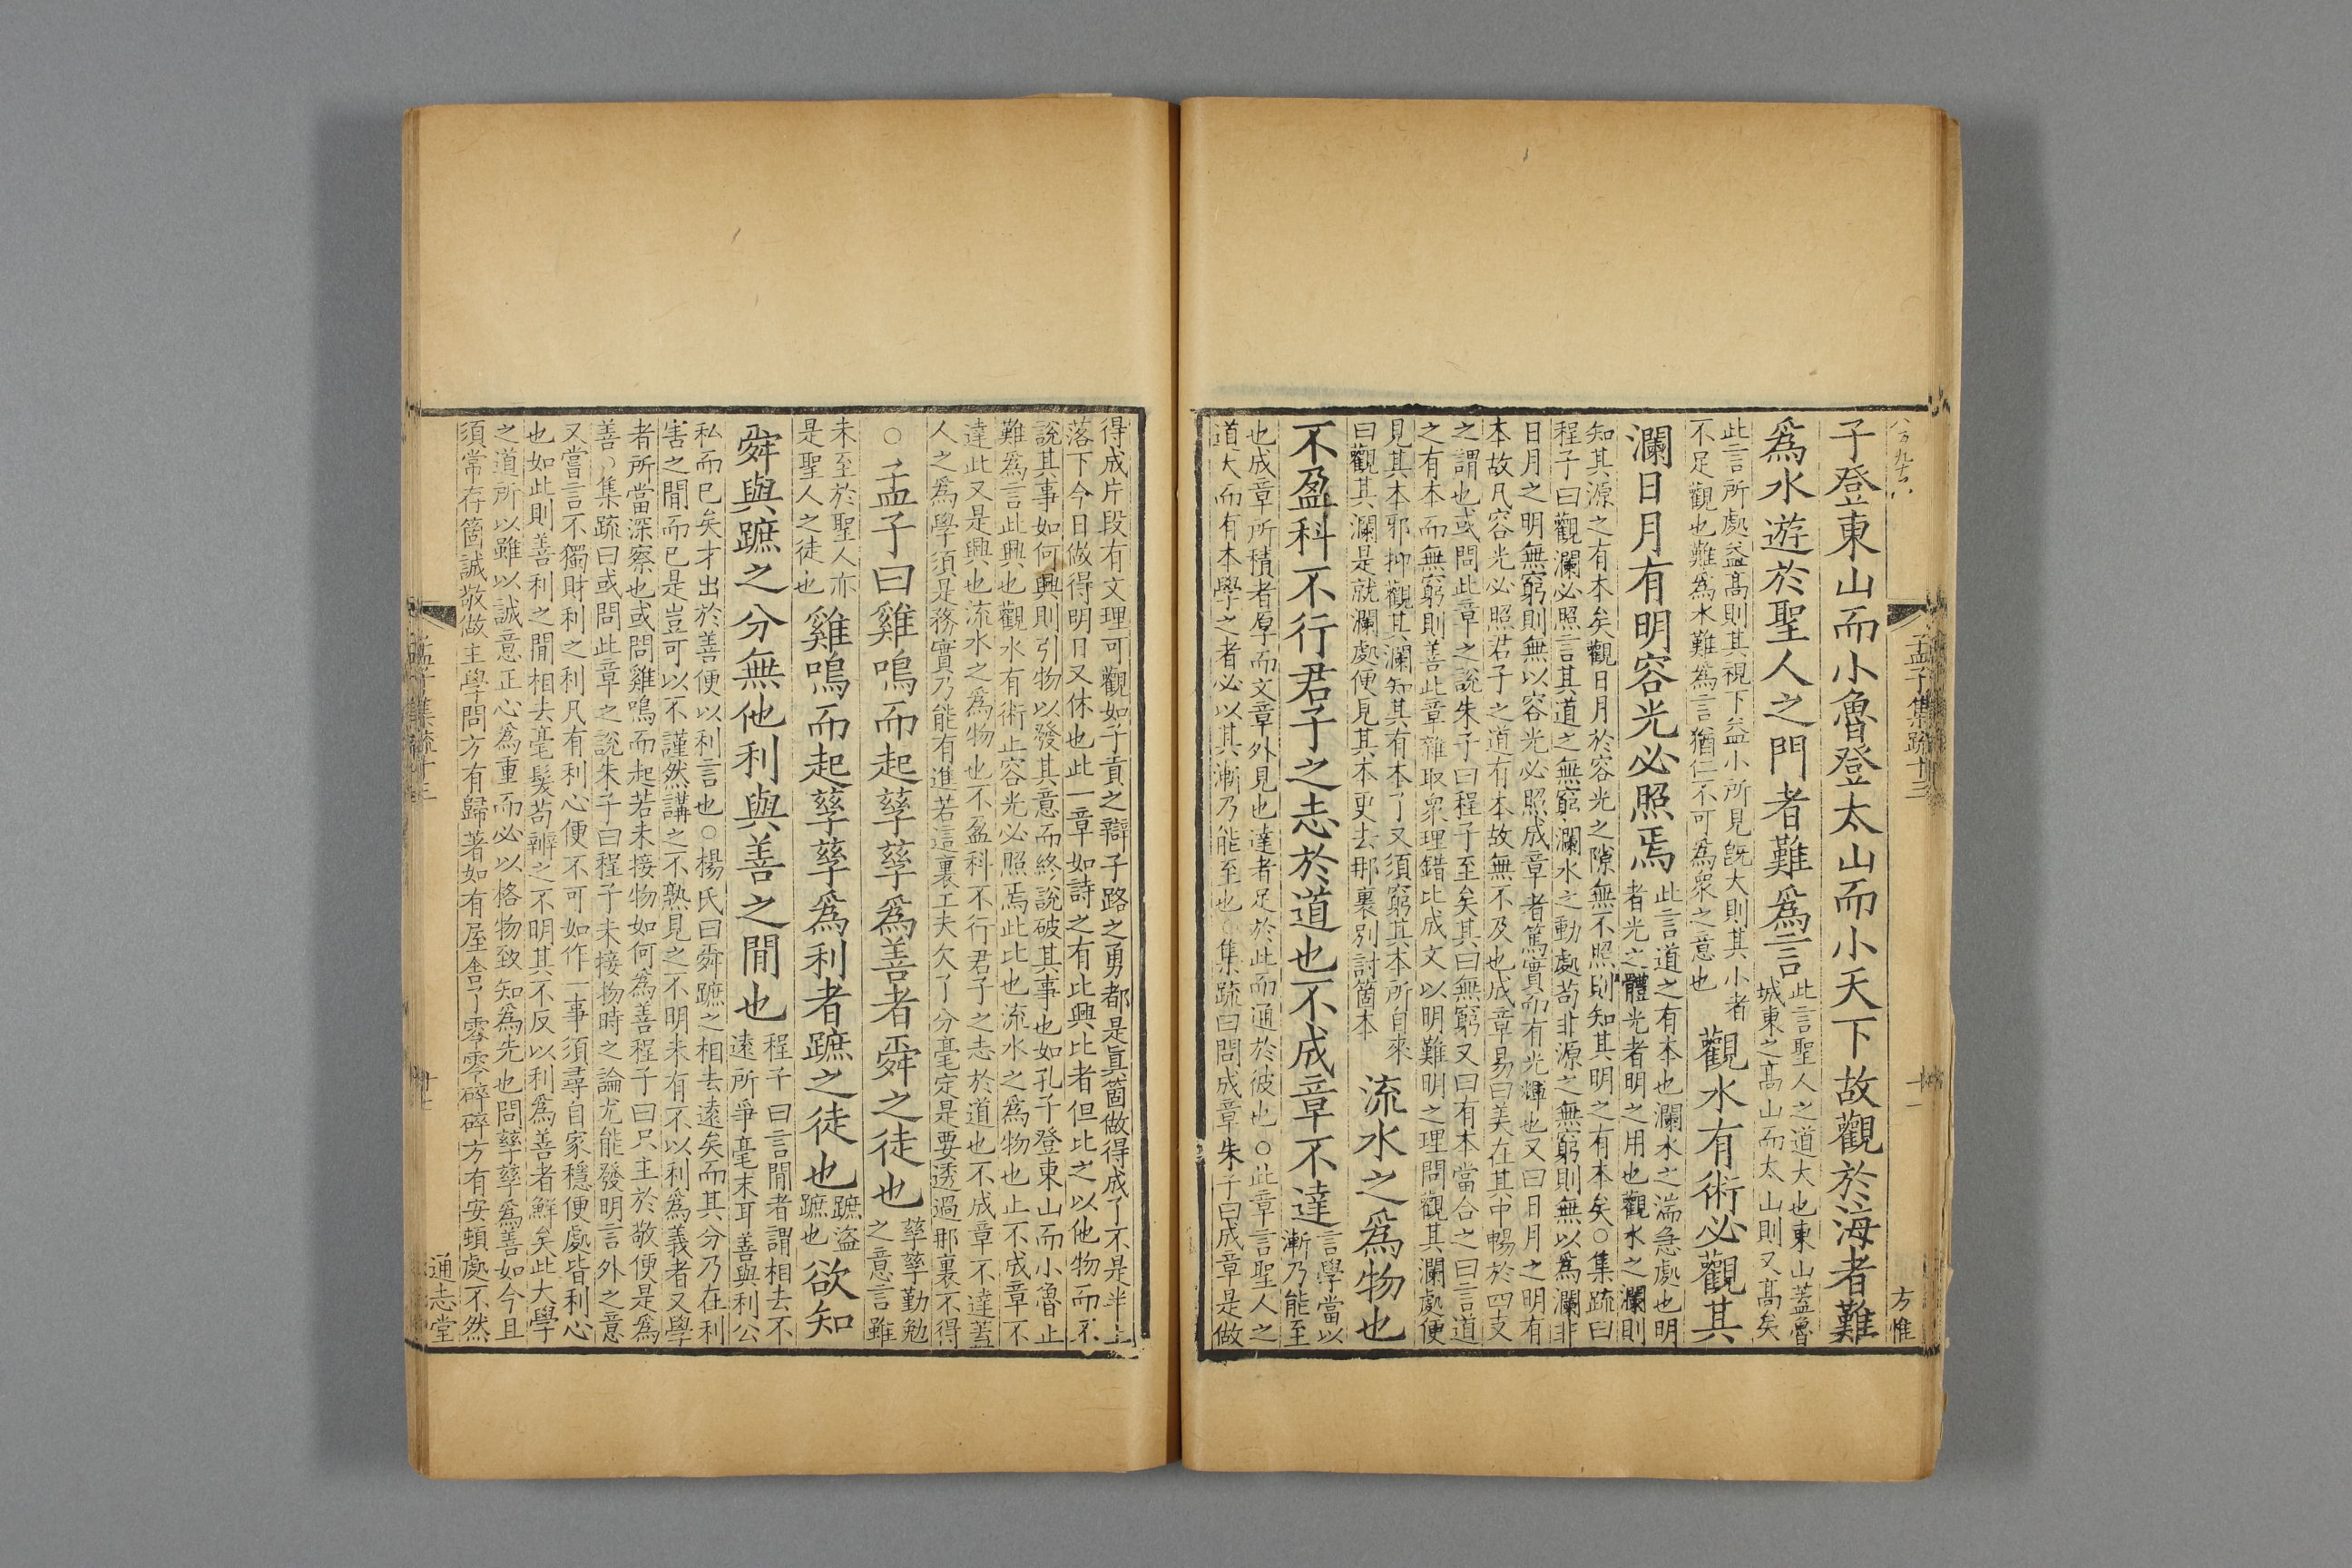 孟子集疏十三
方惟
子登東山而小魯登太山而小天下故觀於海者難
爲水遊於聖人之門者難爲言
此言聖人之道大也東山蓋魯
城東之高山而太山則又高矣
此言所處益高則其視下益小所見旣大則其小者
不足觀也難爲水難爲言猶仁不可爲衆之意也
觀水有術必觀其
瀾日月有明容光必照焉
此言道之有本也瀾水之湍急處也明
者光之體光者明之用也觀水之瀾則
知其源之有本矣觀日月於容光之隙無不照則知其明之有本矣○集疏曰
程子曰觀瀾必照言其道之無窮瀾水之動處苟非源之無窮則無以爲瀾非
日月之明無窮則無以容光必照成章者篤實而有光輝也又曰日月之明有
本故凡容光必照君子之道有本故無不及也成章易曰美在其中暢於四支
之謂也或問此章之說朱子曰程子至矣其曰無窮又曰有本當合之曰言道
之有本而無窮則善此章雜取衆理錯比成文以明難明之理問觀其瀾處便
見其本邪抑觀其瀾知其有本了又須窮其本所自來
曰觀其瀾是就瀾處便見其本更去那裏別討箇本
流水之爲物也
不盈科不行君子之志於道也不成章不達
言學當以
漸乃能至
也成章所積者厚而文章外見也達者足於此而通於彼也○此章言聖人之
道大而有本學之者必以其漸乃能至也○集疏曰問成章朱子曰成章是做
得成片段有文理可觀如子貢之辯子路之勇都是眞箇做得成了不是半上
落下今日做得明日又休也此一章如詩之有比興比者但比之以他物而不
說其事如何興則引物以發其意而終說破其事也如孔子登東山而小魯止
難爲言此興也觀水有術止容光必照焉此比也流水之爲物也止不成章不
達此又是興也流水之爲物也不盈科不行君子之志於道也不成章不達蓋
人之爲學須是務實乃能有進若這裏工夫欠了分毫定是要透過那裏不得
○孟子曰雞鳴而起孳孳爲善者舜之徒也
孳孳勤勉
之意言雖
未至於聖人亦
是聖人之徒也
雞鳴而起孳孳爲利者蹠之徒也
蹠盜
蹠也
欲知
舜與蹠之分無他利與善之閒也
程子曰言閒者謂相去不
遠所爭毫末耳善與利公
私而已矣才出於善便以利言也○楊氏曰舜蹠之相去遠矣而其分乃在利
害之閒而已是豈可以不謹然講之不熟見之不明未有不以利爲義者又學
者所當深察也或問雞鳴而起若未接物如何爲善程子曰只主於敬便是爲
善○集疏曰或問此章之說朱子曰程子未接物時之論尤能發明言外之意
又嘗言不獨財利之利凡有利心便不可如作一事須尋自家穩便處皆利心
也如此則善利之閒相去毫髮苟辨之不明其不反以利爲善者鮮矣此大學
之道所以雖以誠意正心爲重而必以格物致知爲先也問孳孳爲善如今且
須常存箇誠敬做主學問方有歸著如有屋舍了零零碎碎方有安頓處不然
通志堂